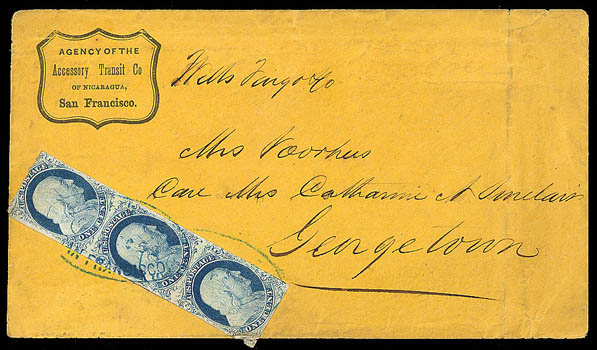 AGENCY OF THE
Accessory Transit Co
OF NICARAGUA,
San Francisco.
Wells Fargo & Co
Mrs Voorhies
Care Mrs Catharine N Sinclair
Georgetown
U.S. POSTAGE
ONE CENT
U.S. POSTAGE
ONE CENT
U.S. POSTAGE
ONE CENT
FRANCISCO